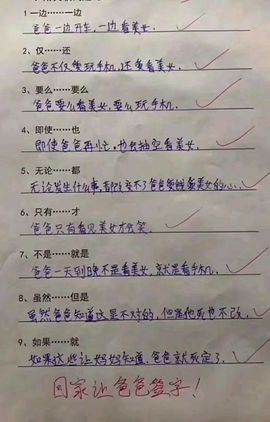 1 一边……一边
爸爸一边开车,一边看美女.
2、仅……还
爸爸不仅要玩手机,还要看美女.
3、要么……要么
爸爸要么看美女,要么玩手机.
4、即使……也
即使爸爸再忙,也会抽空看美女.
5、无论……都
无论发生什么事,都改变不了爸爸要看美女的心.
6、只有……才
爸爸只有看见美女才会笑.
7、不是……就是
爸爸一天到晚不是看美女,就是看手机.
8、虽然……但是
虽然爸爸知道这是不对的,但是他死也不改.
9、如果……就
如果这些让妈妈知道,爸爸就死定了.
回家让爸爸签字!